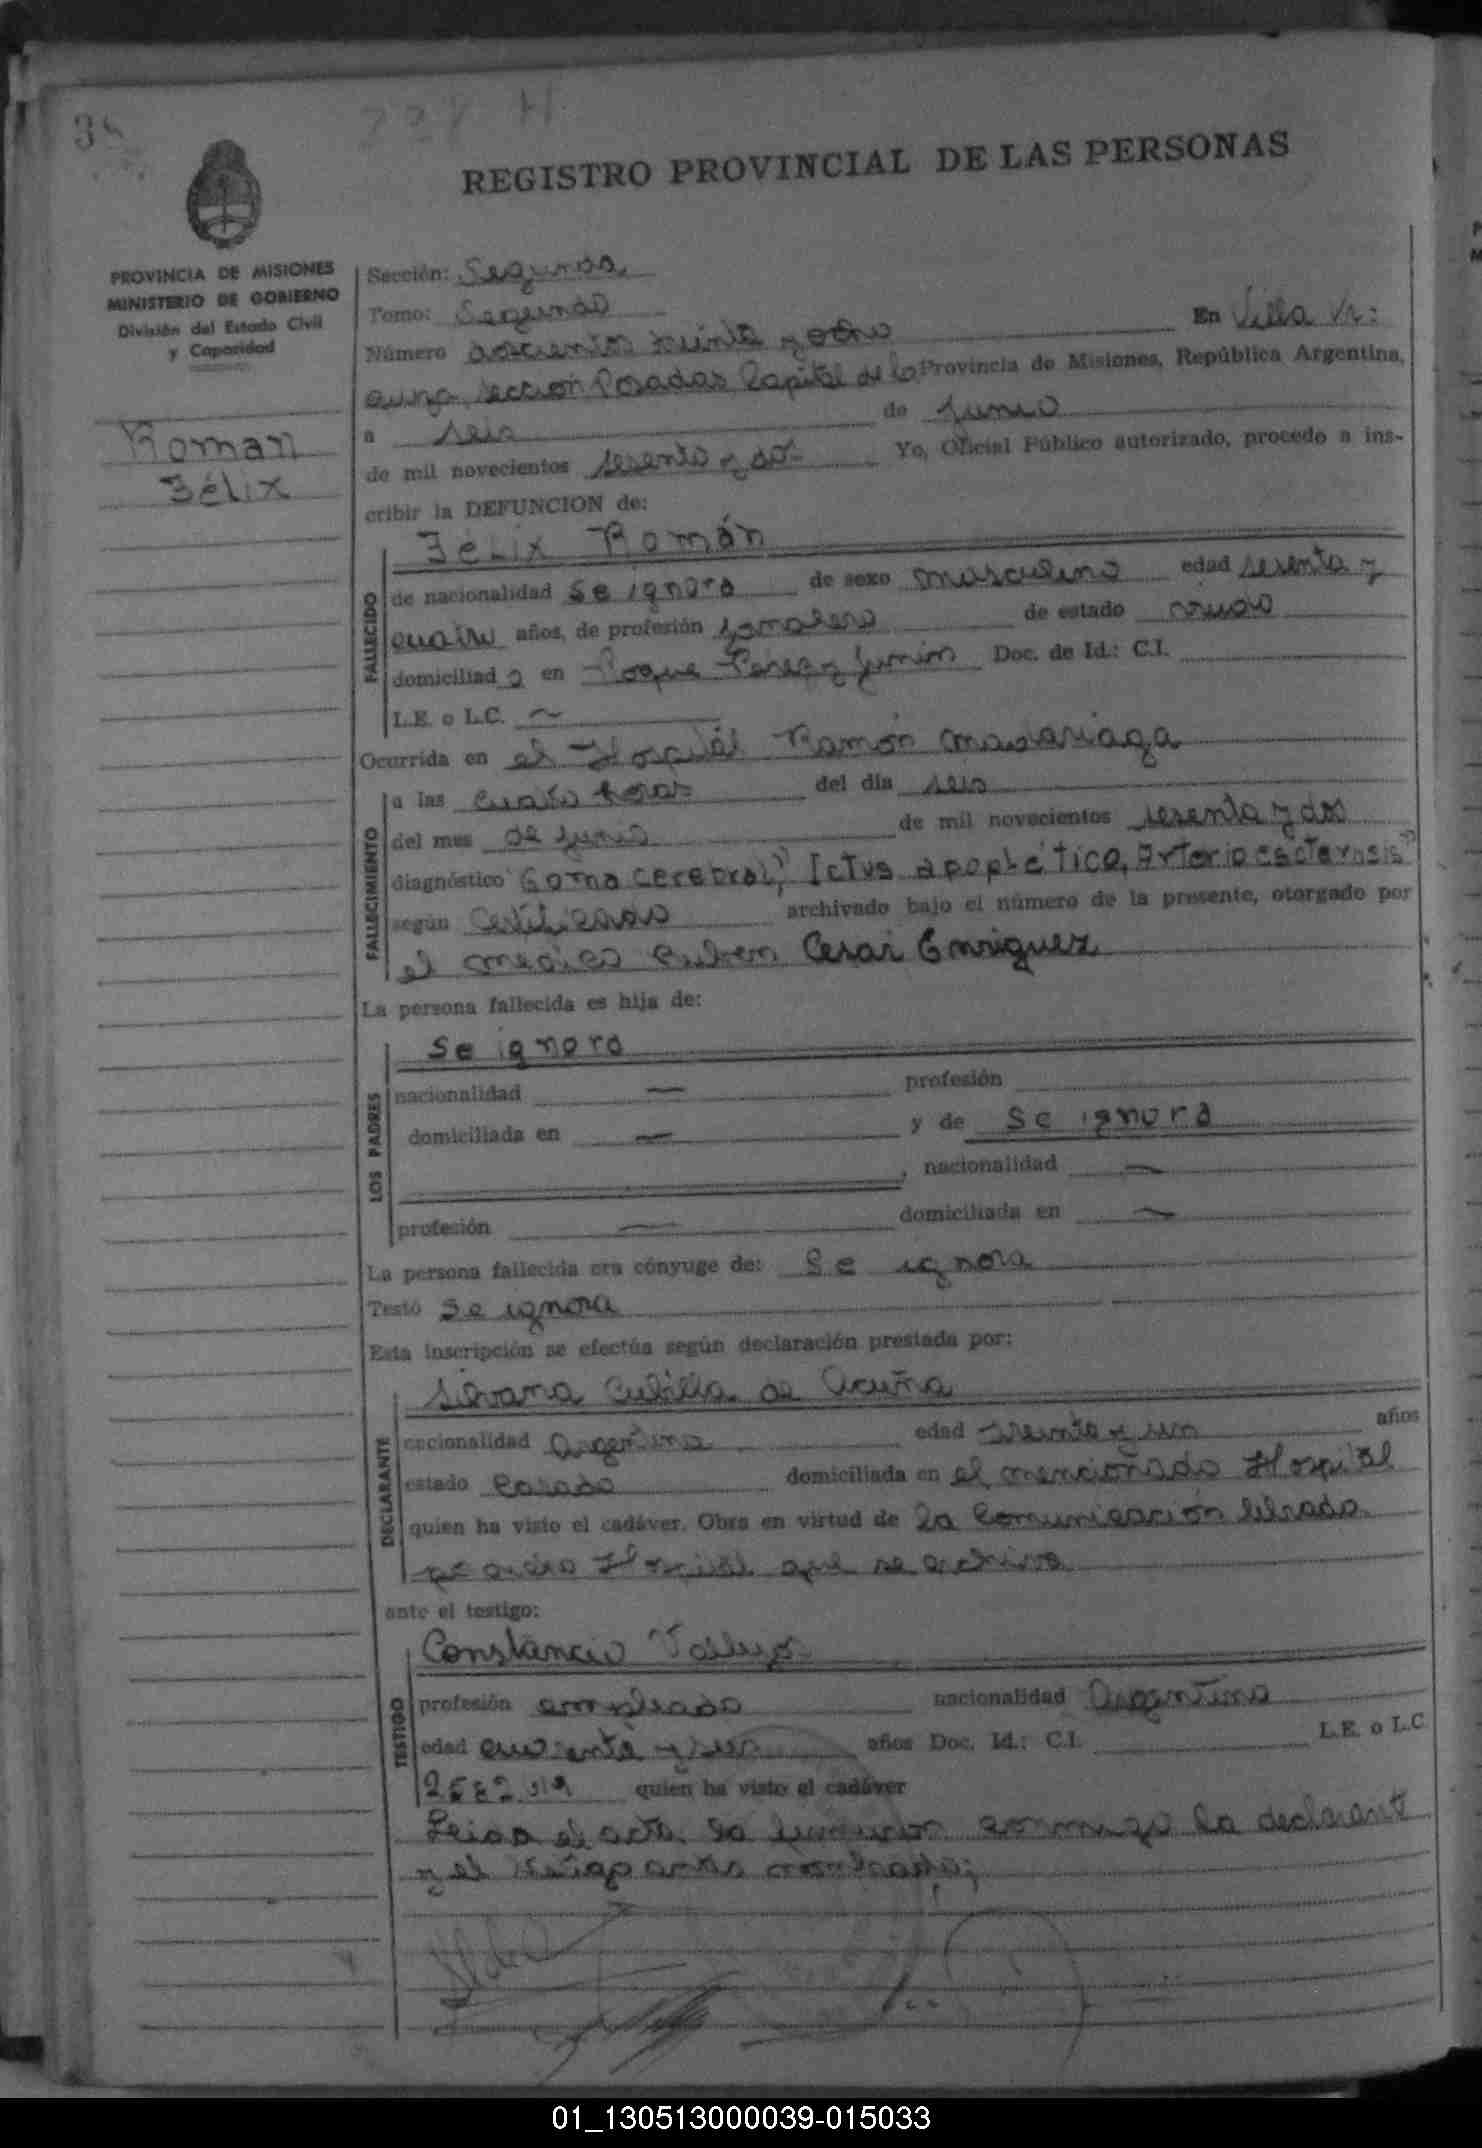 REGISTRO PROVINCIAL DE LAS PERSONAS
PROVINCIA DE MISIONES
MINISTERIO DE GOBIERNO
División del Estado Civil
y Capacidad
Roman
Félix
Sección: Segunda
Tomo: Segundo
Número doscientos treinta y ocho En Villa Ur:
quiza, seccion Posadas Capital de la Provincia de Misiones, República Argentina,
a seis de Junio
de mil novecientos sesenta y dos Yo, Oficial Público autorizado, procedo a ins-
cribir la DEFUNCION de:
Félix Román
FALLECIDO
de nacionalidad se ignora de sexo masculino edad sesenta y
cuatro años, de profesión jornalero de estado viudo
domiciliado en Roque Perez y Junin Doc. de Id.: C.I.
L.E. o L.C.
Ocurrida en el Hospital Ramón Madariaga
FALLECIMIENTO
a las cuatro horas del día seis
del mes de junio de mil novecientos sesenta y dos
diagnóstico "Coma cerebral, Ictus apopletico, Arterioesclerosis"
según certificado archivado bajo el número de la presente, otorgado por
el medico Ruben Cesar Enriquez
La persona fallecida es hija de:
LOS PADRES
se ignora
nacionalidad — profesión
domiciliada en — y de se ignora
, nacionalidad —
profesión — domiciliada en —
La persona fallecida era cónyuge de: se ignora
Testó se ignora
Esta inscripción se efectúa según declaración prestada por:
DECLARANTE
Silvana Cubilla de Acuña
nacionalidad argentina edad treinta y un años
estado casada domiciliada en el mencionado Hospital
quien ha visto el cadáver. Obra en virtud de la comunicación librada
por dicho Hospital que se archiva
ante el testigo:
TESTIGO
Constancio Vallejos
profesión empleado nacionalidad Argentino
edad cuarenta y años Doc. Id.: C.I. L.E. o L.C.
quien ha visto el cadáver
Leida el acta la firmaron conmigo la declarante
y el testigo antes nombrados;
01_130513000039-015033